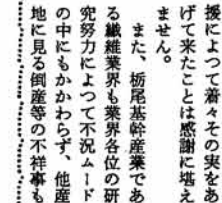 援によって着々その実をあ
げて来たことは感謝に堪え
ません。
また、栃尾基幹産業であ
る繊維業界も業界各位の研
究努力によつて不況ムード
の中にもかかわらず、他産
地に見る倒産等の不祥事も